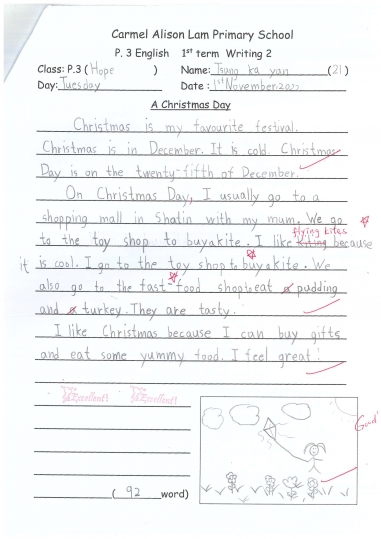 Carmel Alison Lam Primary School
P. 3 English 1st term Writing 2
Class: P.3 ( Hope ) Name: Tsang ka yan (21)
Day: Tuesday Date : 1st November 2022
A Christmas Day
Christmas is my favourite festival.
Christmas is in December. It is cold. Christmas
Day is on the twenty-fifth of December.
On Christmas Day, I usually go to a
shopping mall in Shatin with my mum. We go
flying kites
to the toy shop to buy a kite. I like kiting because
it is cool. I go to the toy shop to buy a kite. We
also go to the fast-food shop to eat a pudding
and a turkey. They are tasty.
I like Christmas because I can buy gifts
and eat some yummy food. I feel great!
Excellent! Excellent!
Good!
( 92 word)